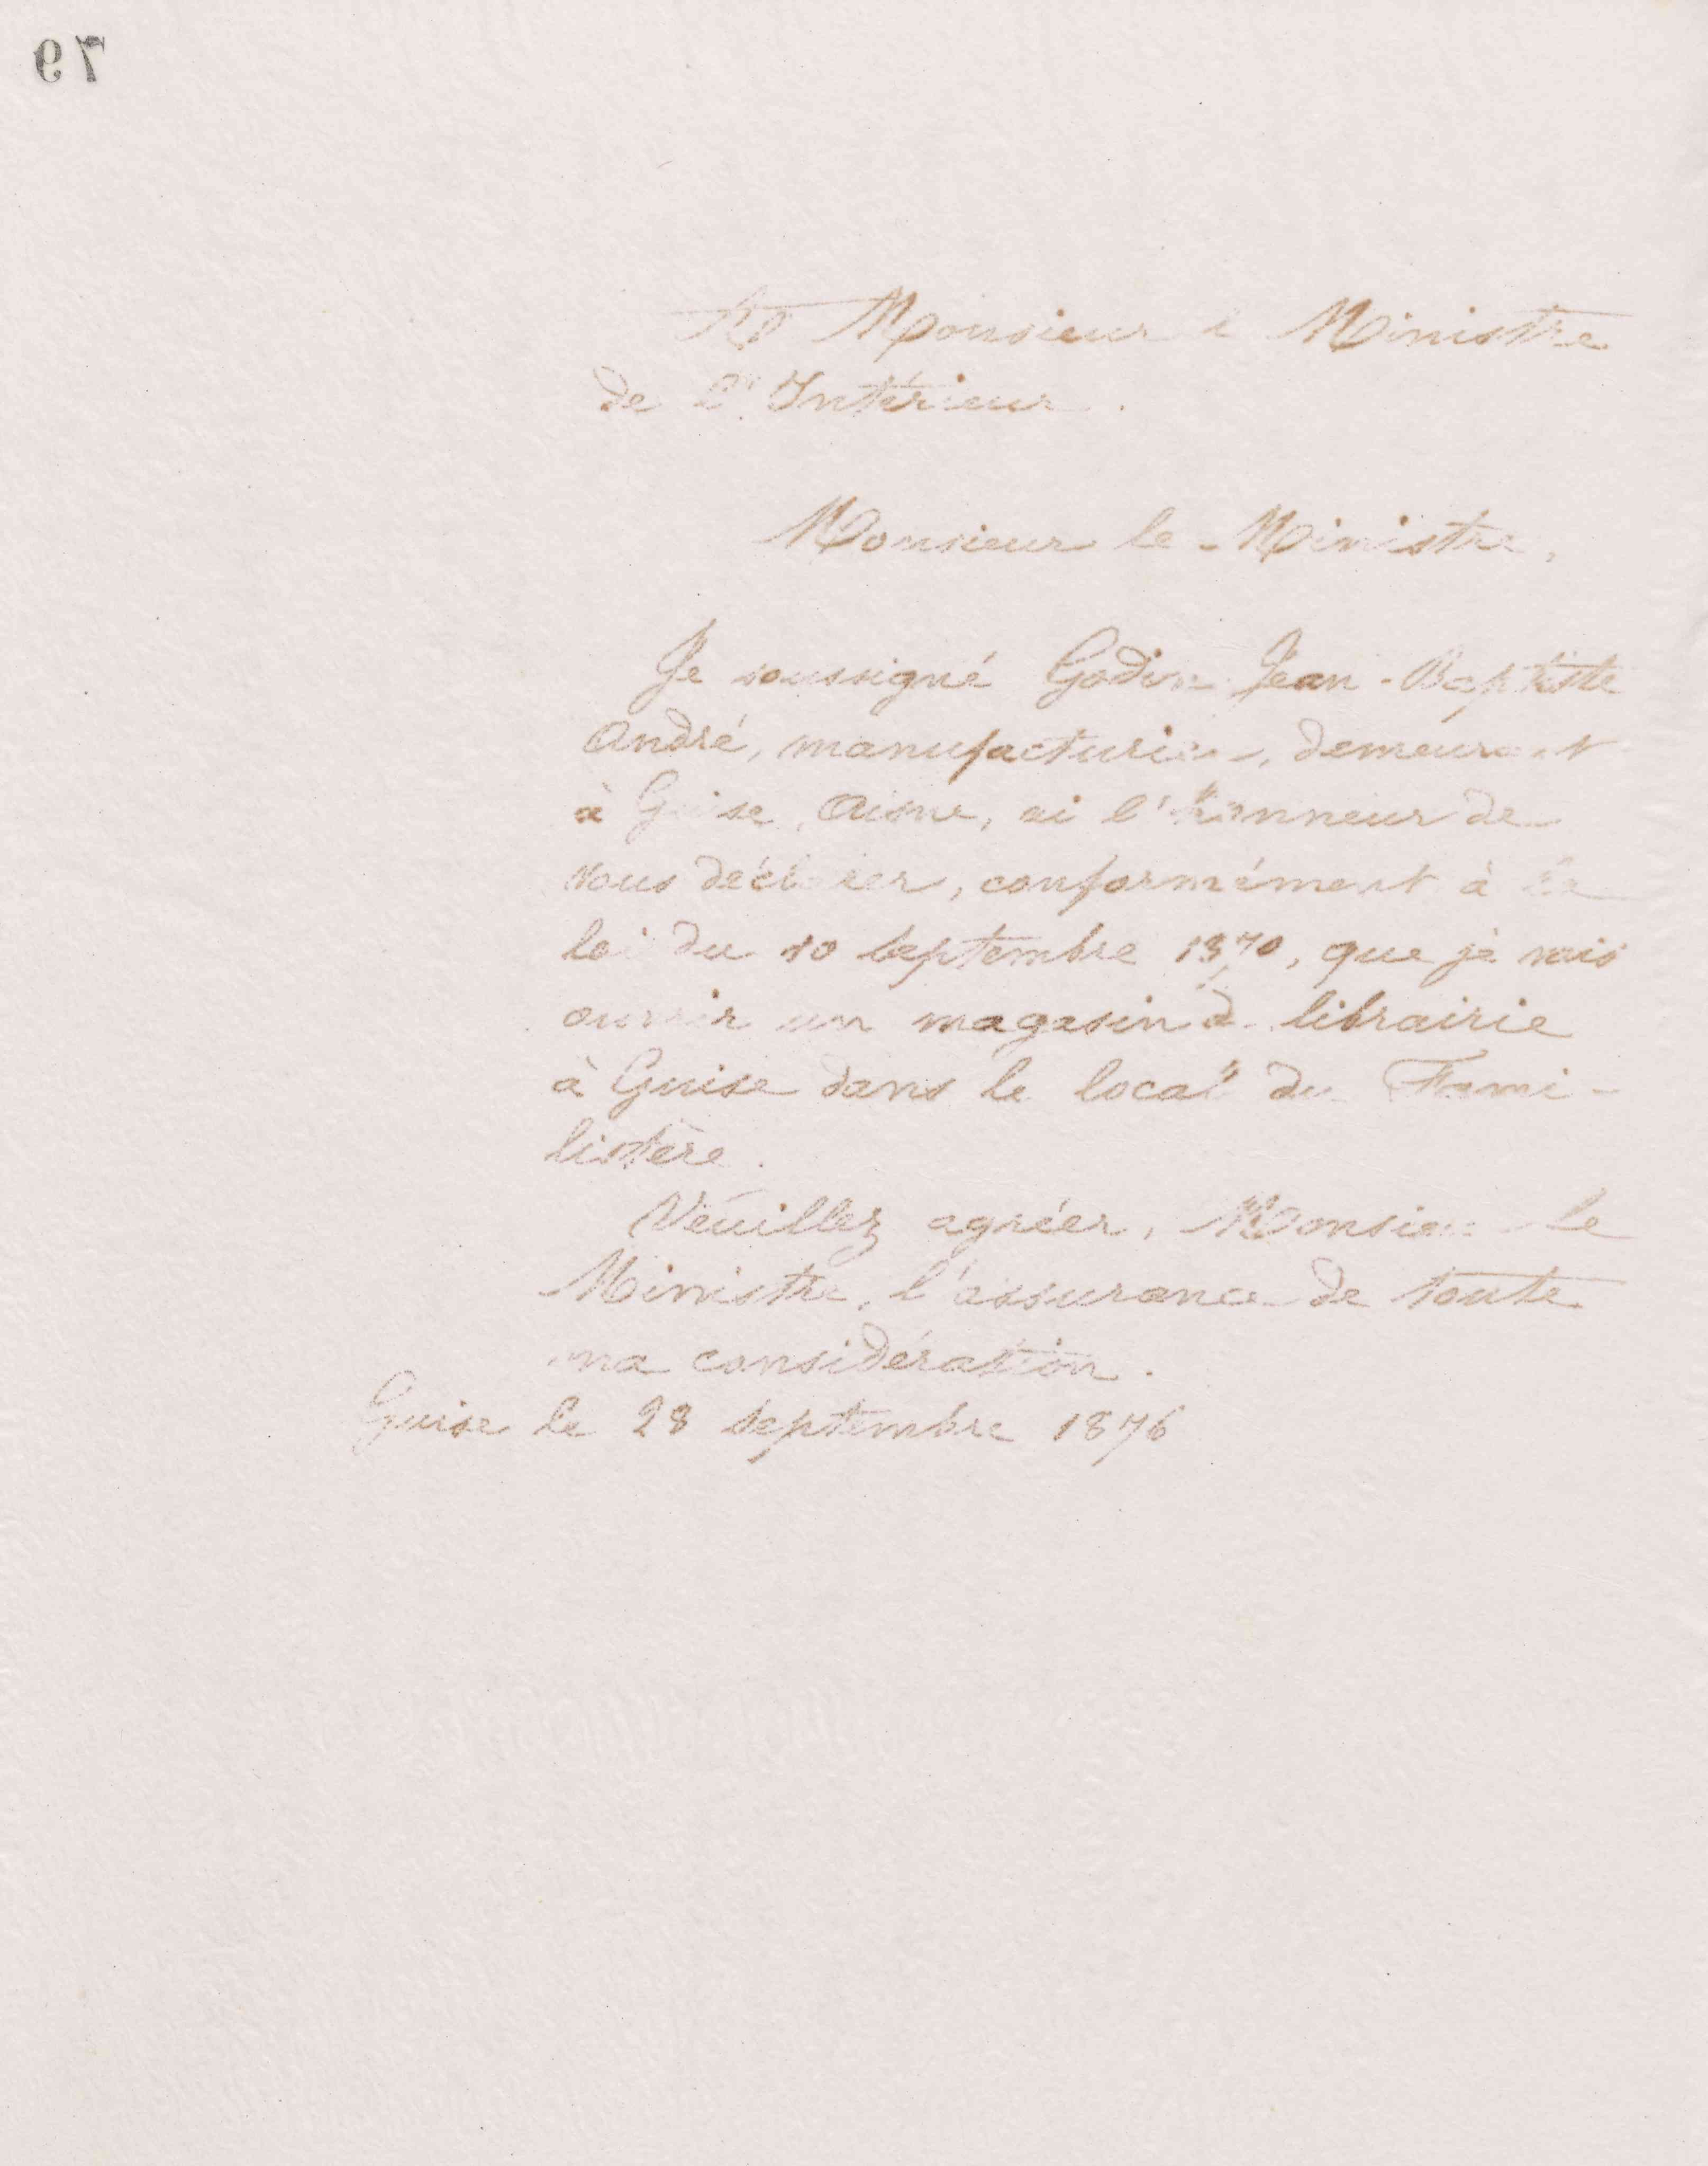 79
A Monsieur le Ministre
de l'Intérieur.
Monsieur le Ministre,
Je soussigné Godin Jean-Baptiste
André, manufacturier, demeurant
à Guise, Aisne, ai l'honneur de
vous déclarer, conformément à la
loi du 10 septembre 1870, que je vais
ouvrir un magasin de librairie
à Guise dans le local du Fami-
listère.
Veuillez agréer, Monsieur le
Ministre, l'assurance de toute
ma considération.
Guise le 28 septembre 1876